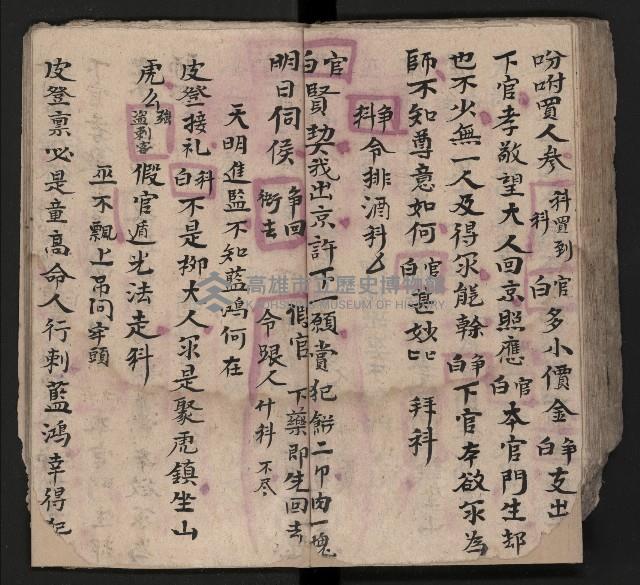 吩咐買人參 科買到科 官白 多小價金 争白 支出
下官孝敬望大人回京照應 官白 本官門生却
也不少無一人及得永能榦 争白 下官本欲永為
師不知尊意如何 官白 甚妙匕 拜科
争科 令排酒科
官白 賢契我出京許下願賞犯餅二卩肉一塊
明日伺侯 争回衙去 假官 下藥即生回去 令跟人 什科 不尽
天明進監不知藍鴻何在
皮登接礼 科白 不是柳大人永是聚虎鎮坐山
虎么 強盜刺客 假官遁光法走科
不飄上吊问宰頭
皮登禀必是童高命人行刺藍鴻幸得犯
高雄市立歷史博物館
KAOHSIUNG MUSEUM OF HISTORY